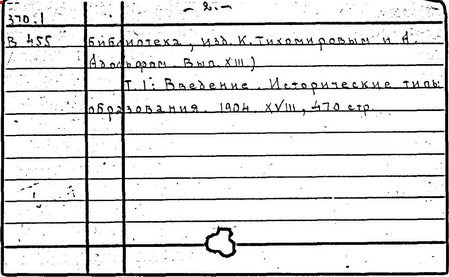 - 2. -
370.1
В 455 Библиотека, изд. К. Тихомировым и А.
Адольфом. Вып. XIII)
Т. 1: Введение. Исторические типы
образования. 1904. XVIII, 470 стр.